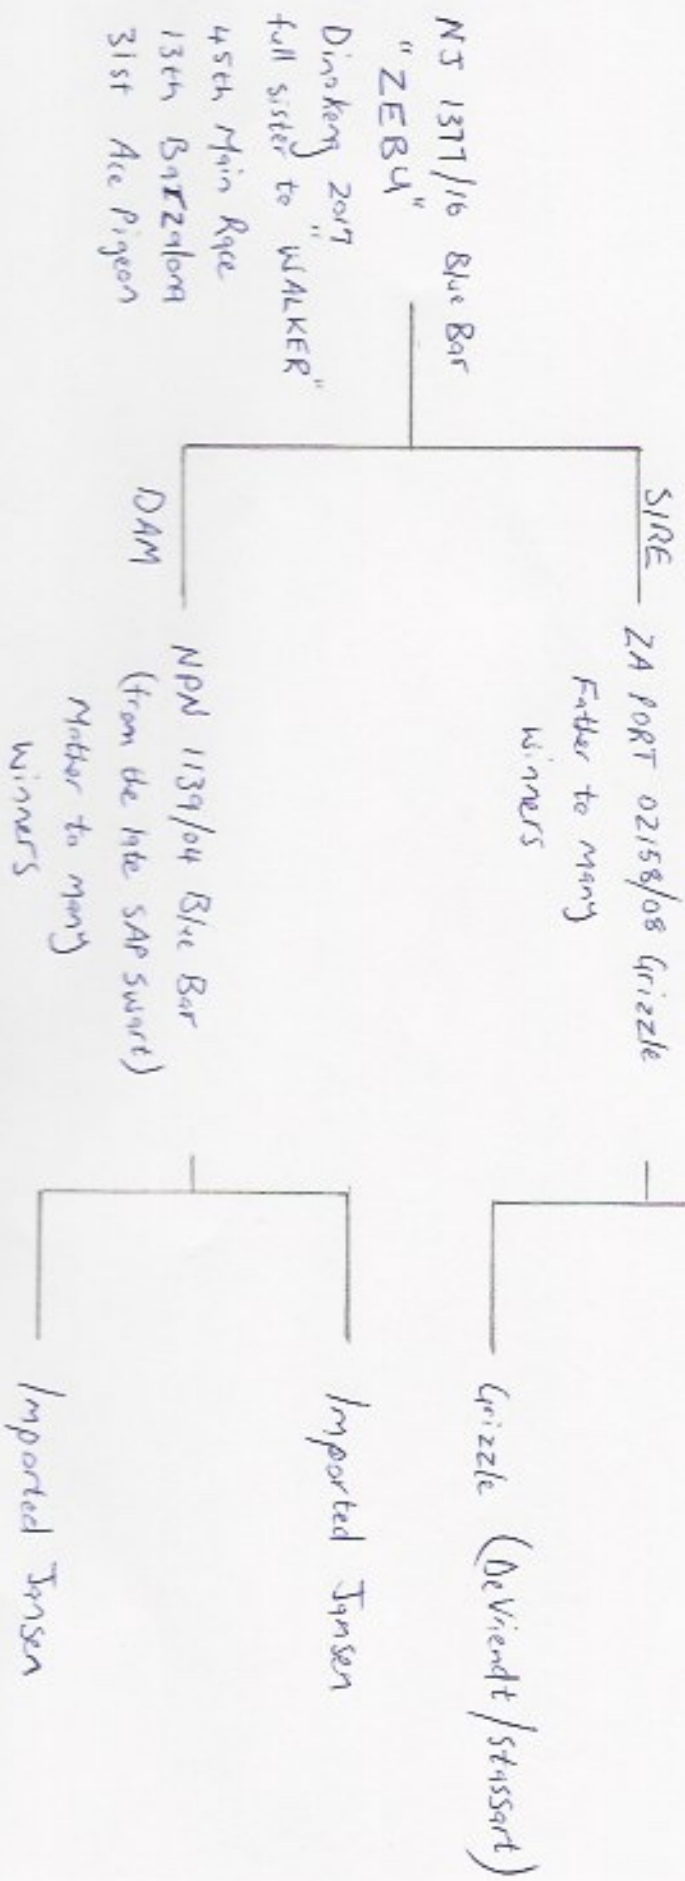 NJ 1377/16 Blue Bar
"ZEBU"
Dinokeng 2017
full sister to "WALKER"
45th Main Race
13th Barzalona
31st Ace Pigeon
SIRE
ZA PORT 02158/08 Grizzle
Father to many
winners
DAM
NPN 1139/04 Blue Bar
(from the late SAP Swart)
Mother to many
winners
Grizzle (DeVriendt/Stassart)
Imported Jansen
Imported Jansen